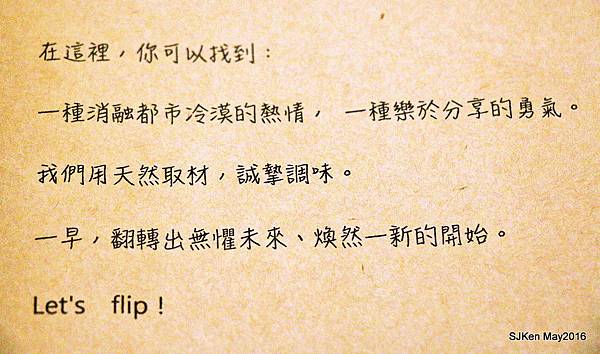 在這裡，你可以找到：
一種消融都市冷漠的熱情， 一種樂於分享的勇氣。
我們用天然取材，誠摯調味。
一早，翻轉出無懼未來、煥然一新的開始。
Let's flip！
SJKen May2016